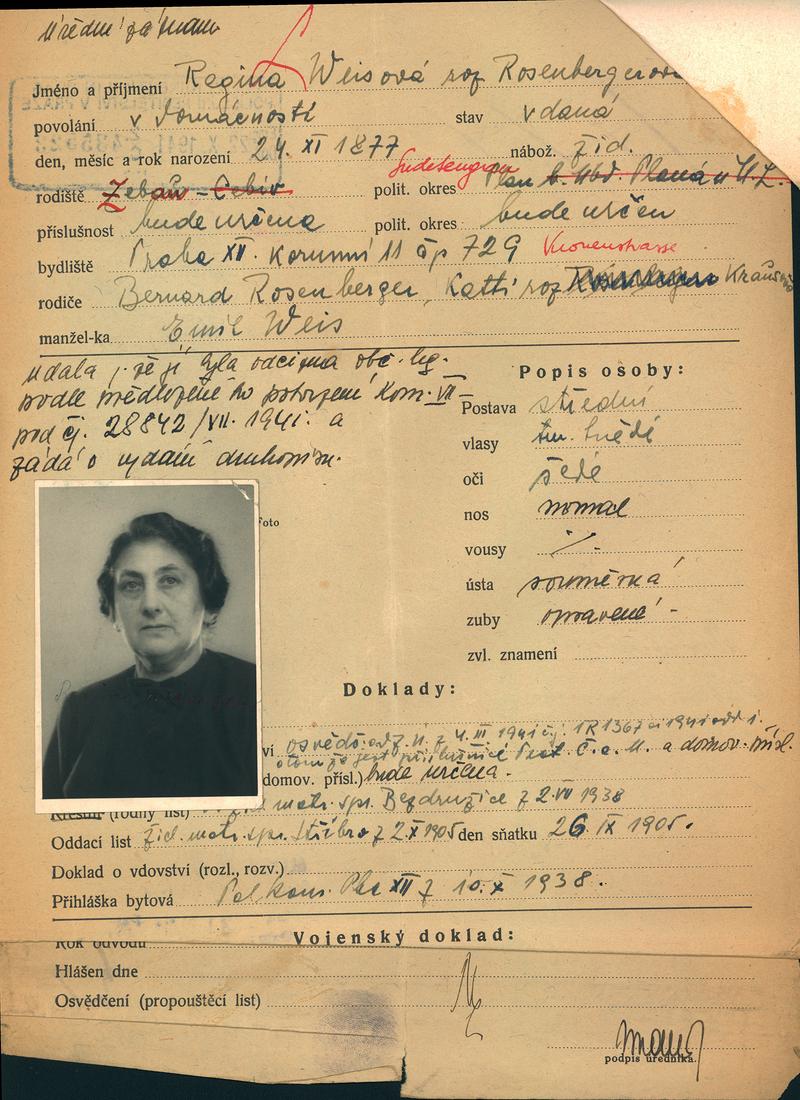 Úřední záznam
Jméno a příjmení Regina Weisová roz Rosenbergerová
povolání v domácnosti stav vdaná
den, měsíc a rok narození 24. XI 1877 nábož. žid.
Sudetengau
rodiště Zebau - Cebiv polit. okres Plan
příslušnost bude určena polit. okres bude určen
bydliště Praha XII. Korunní 11 čp 729
rodiče Bernard Rosenberger, Katti roz
manžel-ka Emil Weis
Udala, že jí byla odcizena obč. leg.
podle předloženého potvrzení Kom. VII
pod čj. 28842/VII. 1941. a
žádá o vydání druhopisu.
Popis osoby:
Postava střední
vlasy tm. hnědé
oči šedé
nos normal
vousy ·/.
ústa souměrná
zuby opravené -
zvl. znamení
Foto
Doklady:
ví osvědč. z 4. III 1941 čj. 1R 1367
o tom že jest příslušnicí Prot. Č. a. M. a domov. přísl.
domov. přísl.) bude určena.
Křestní (rodný list) matr. spr. Bezdružice z 2. VII 1938
Oddací list žid. matr. spr. Stříbro z 2 X 1905 den sňatku 26 IX 1905.
Doklad o vdovství (rozl., rozv.)
Přihláška bytová Pol. kom. Pha XII z 10. X 1938.
Vojenský doklad:
Rok odvodu
Hlášen dne
Osvědčení (propouštěcí list)
podpis úředníka.